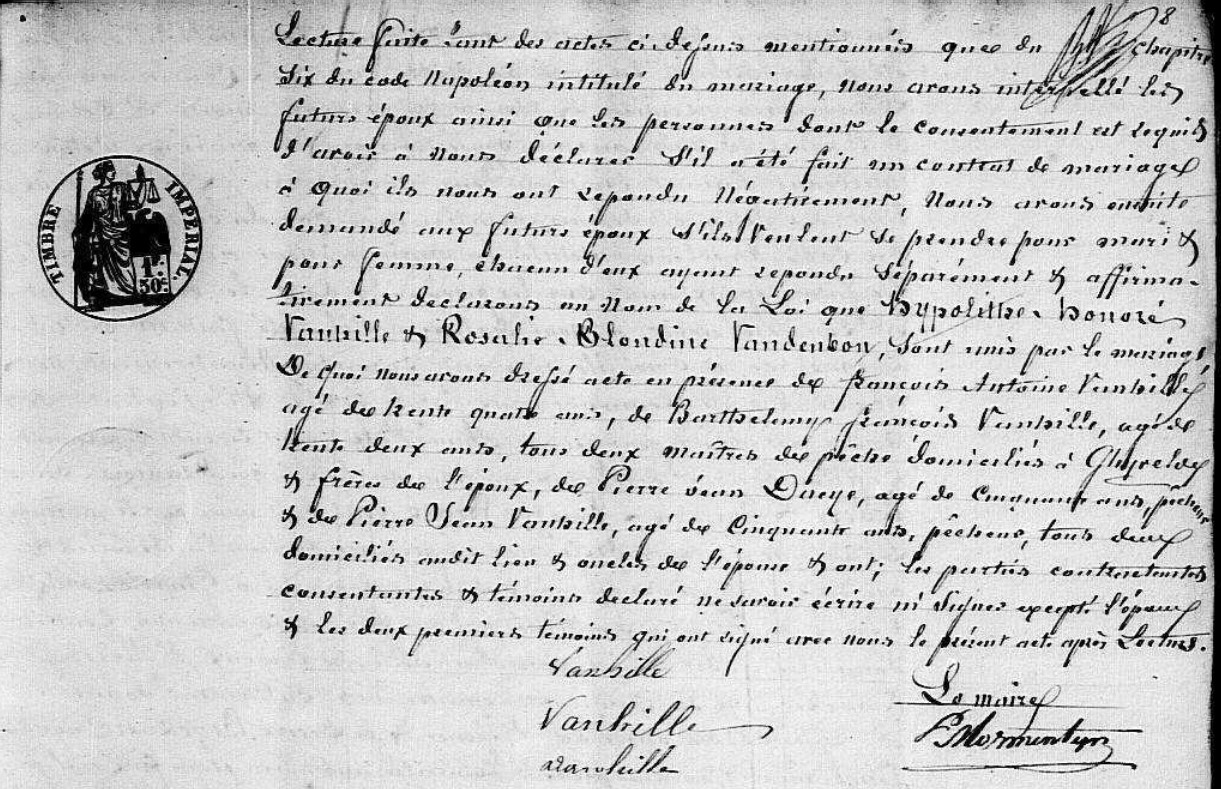 8
Lecture faite tant des actes ci-dessus mentionnés que du chapitre
six du code Napoléon intitulé du mariage, nous avons interpellé les
futurs époux ainsi que les personnes dont le consentement est requis
d'avoir à nous déclarer s'il a été fait un contrat de mariage
à quoi ils nous ont repondu négativement, Nous avons ensuite
demandé aux futurs époux s'ils veulent se prendre pour mari &
pour femme, chacun d'eux ayant repondu séparément & affirma-
tivement declarons au nom de la Loi que Hypolithe Honoré
Vanhille & Rosalie Blondine Vandenbon, sont unis par le mariage
De quoi nous avons dressé acte en présence de françois Antoine Vanhille
agé de trente quatre ans, de Barthelemy françois Vanhille, agé de
trente deux ans, tous deux maîtres de pêche domiciliés à Ghyvelde
& frères de l'époux, de Pierre Jean Dueye, agé de cinquante ans, pêcheur
& de Pierre Jean Vanhille, agé de cinquante ans, pêcheur, tous deux
domiciliés audit lieu & oncles de l'épouse & ont; les parties contractantes
consentantes & témoins declaré ne savoir écrire ni signer excepté l'époux
& les deux premiers témoins qui ont signé avec nous le présent acte après Lecture.
TIMBRE IMPÉRIAL
1f
50c
Vanhille
Vanhille
Vanhille
Le maire